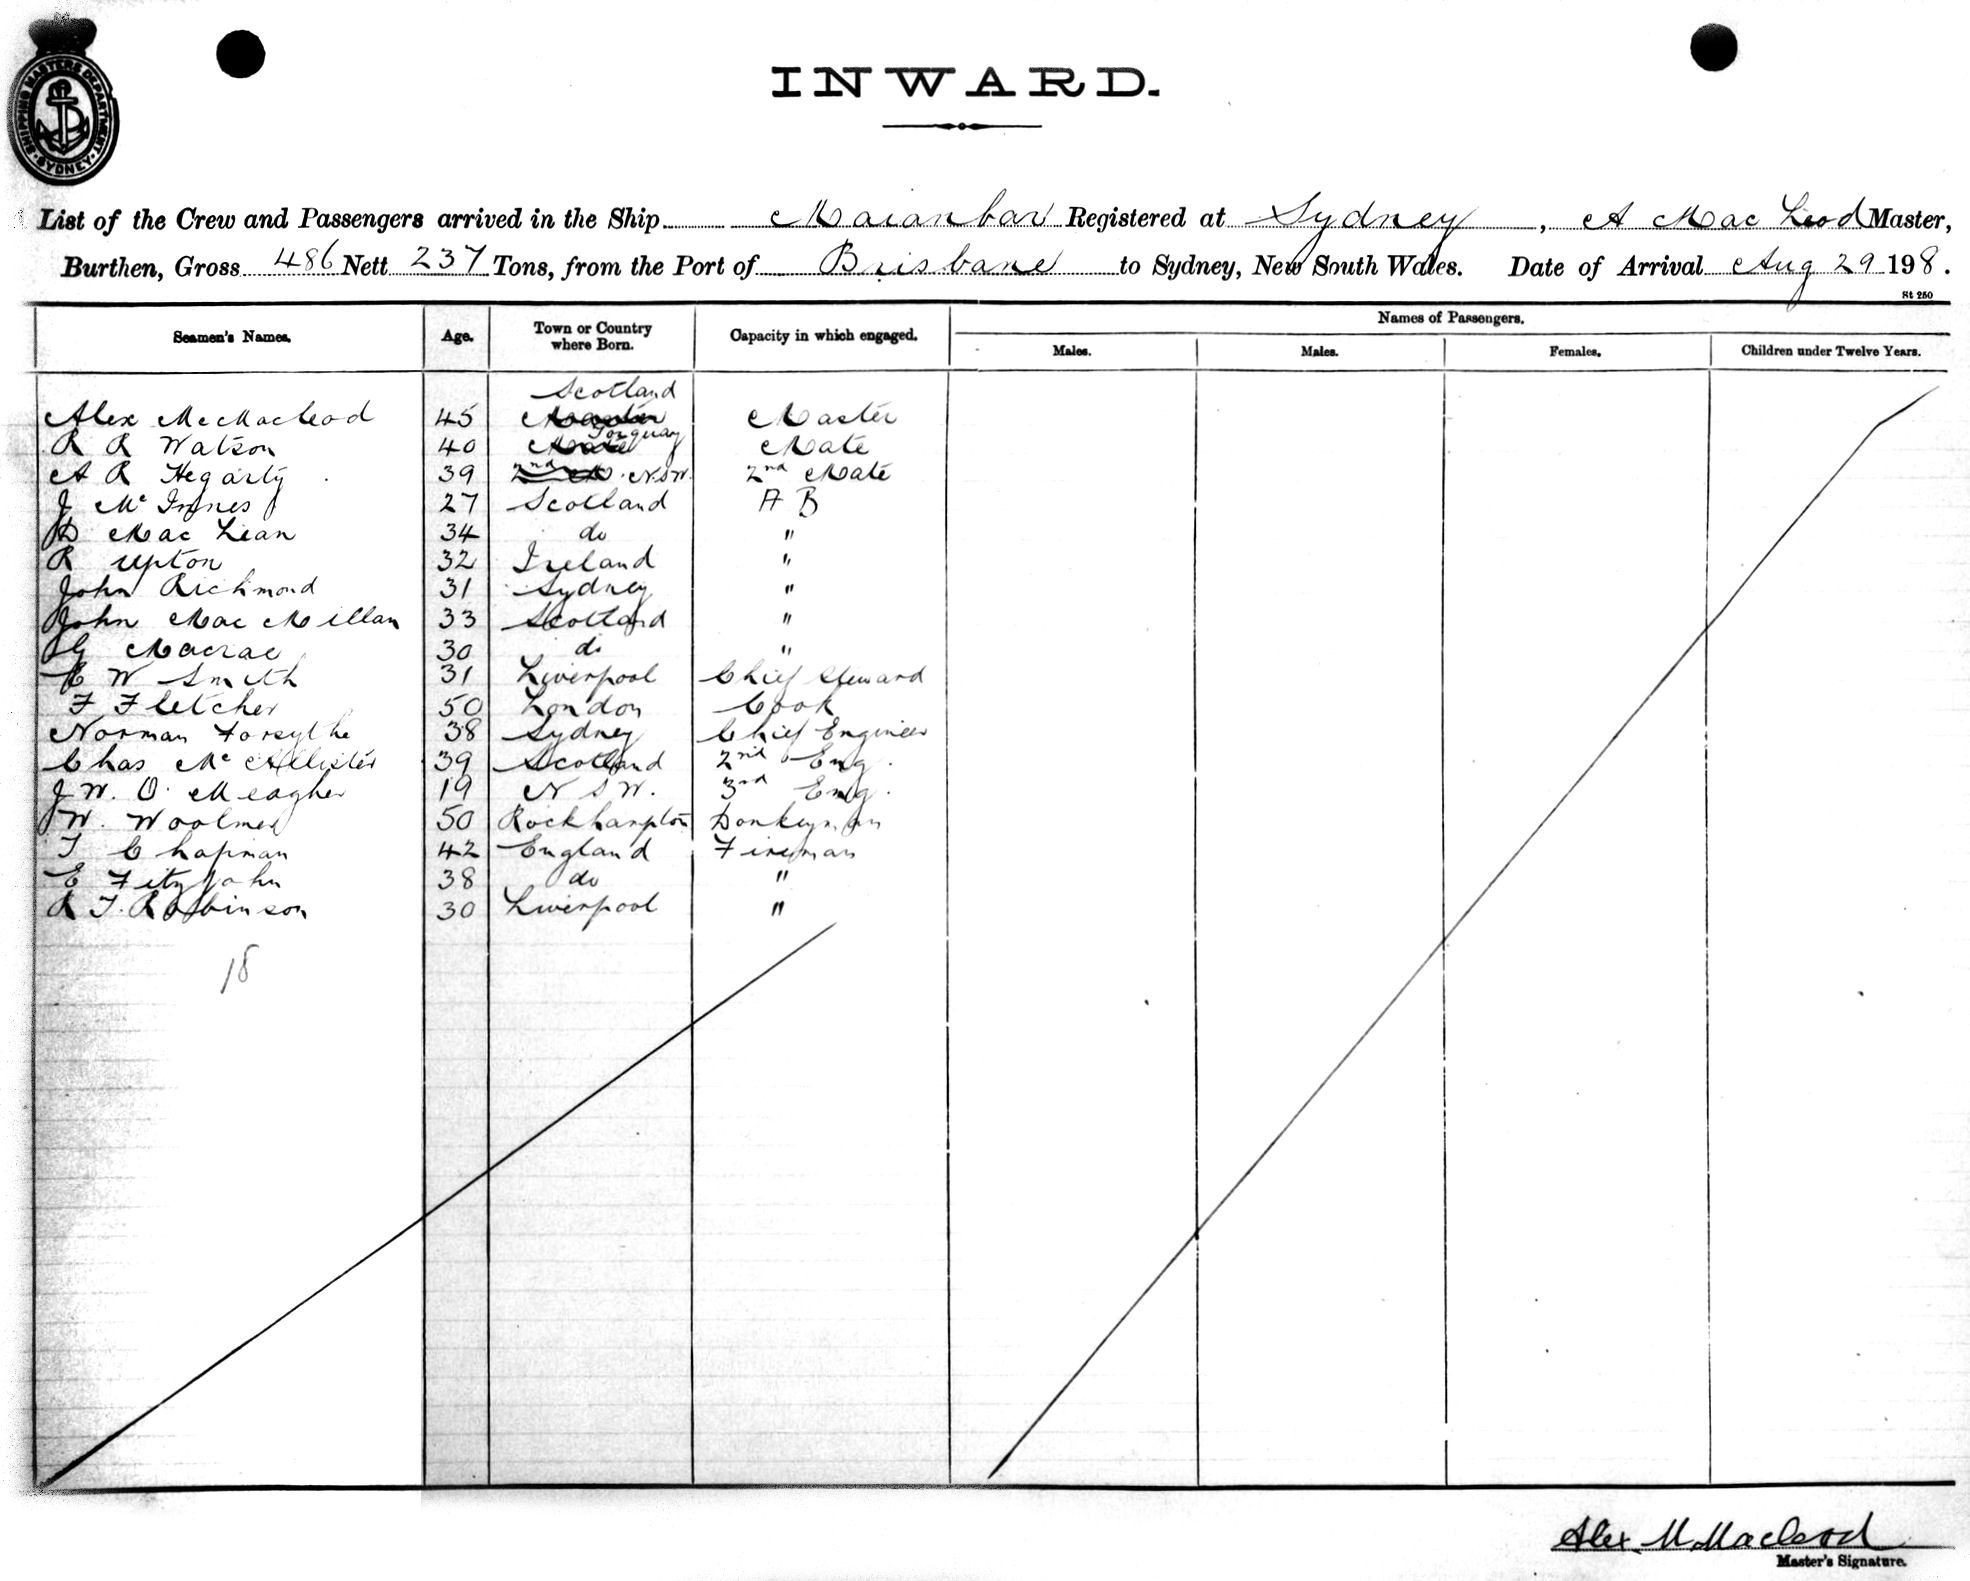 SHIPPING MASTERS DEPARTMENT
SYDNEY
INWARD.
List of the Crew and Passengers arrived in the Ship Maianbar Registered at Sydney, A Mac Leod Master,
Burthen, Gross 486 Nett 237 Tons, from the Port of Brisbane to Sydney, New South Wales. Date of Arrival Aug 29 198.
St 250
Seamen's Names. Age. Town or Country where Born. Capacity in which engaged. Names of Passengers.
Males. Males. Females. Children under Twelve Years.
Scotland
Alex McMacleod 45 Master Master
Torquay
R R Watson 40 Mate Mate
A R Hegarty 39 2nd M. N.S.W. 2nd Mate
J McInnes 27 Scotland A B
D Mac Lean 34 do "
R Upton 32 Ireland "
John Richmond 31 Sydney "
John Mac Millan 33 Scotland "
G Macrae 30 do "
E W Smith 31 Liverpool Chief Steward
F Fletcher 50 London Cook
Norman Forsythe 38 Sydney Chief Engineer
Chas McAllister 39 Scotland 2nd Eng.
J W. O. Meagher 19 N S W. 3rd Eng.
W. Woolmer 50 Rockhampton Donkeyman
T Chapman 42 England Fireman
E Fitzjohn 38 do "
R T. Robinson 30 Liverpool "
18
Alex. M. Macleod
Master's Signature.